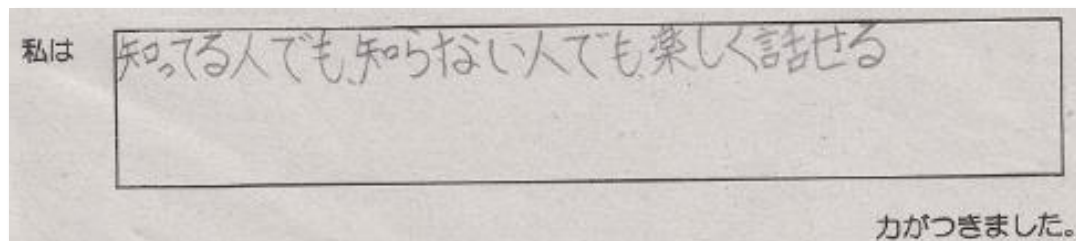 私は 知ってる人でも、知らない人でも、楽しく話せる
力がつきました。